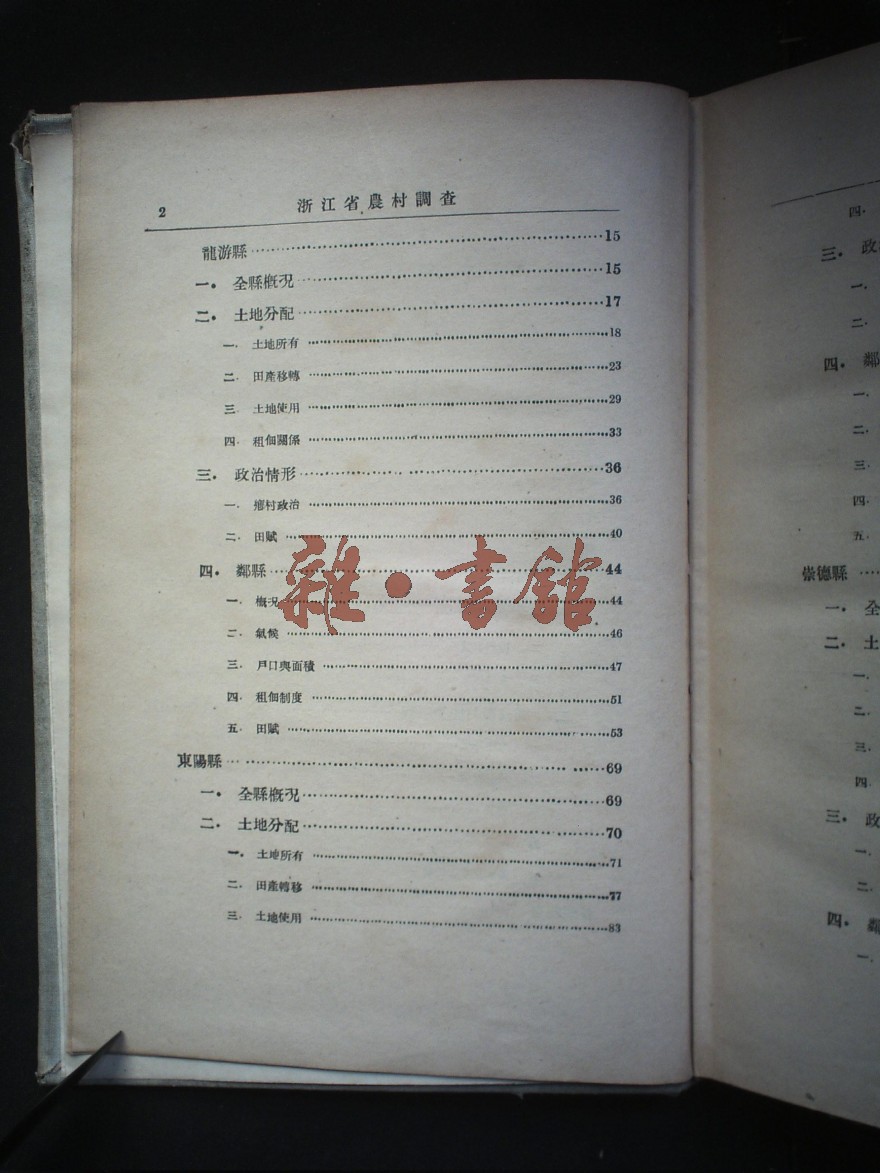 2 浙江省農村調查
龍游縣 15
一. 全縣概況 15
二. 土地分配 17
一. 土地所有 18
二. 田產移轉 23
三. 土地使用 29
四. 租佃關係 33
三. 政治情形 36
一. 鄉村政治 36
二. 田賦 40
四. 鄰縣 44
一. 概況 44
二. 氣候 46
三. 戶口與面積 47
四. 租佃制度 51
五. 田賦 53
東陽縣 69
一. 全縣概況 69
二. 土地分配 70
一. 土地所有 71
二. 田產轉移 77
三. 土地使用 83
雜·書館
四.
三. 政
一.
二.
四. 鄰
一.
二.
三.
四.
五.
崇德縣
一. 全
二. 土
一.
二.
三.
四.
三. 政
一.
二.
四. 鄰
一.